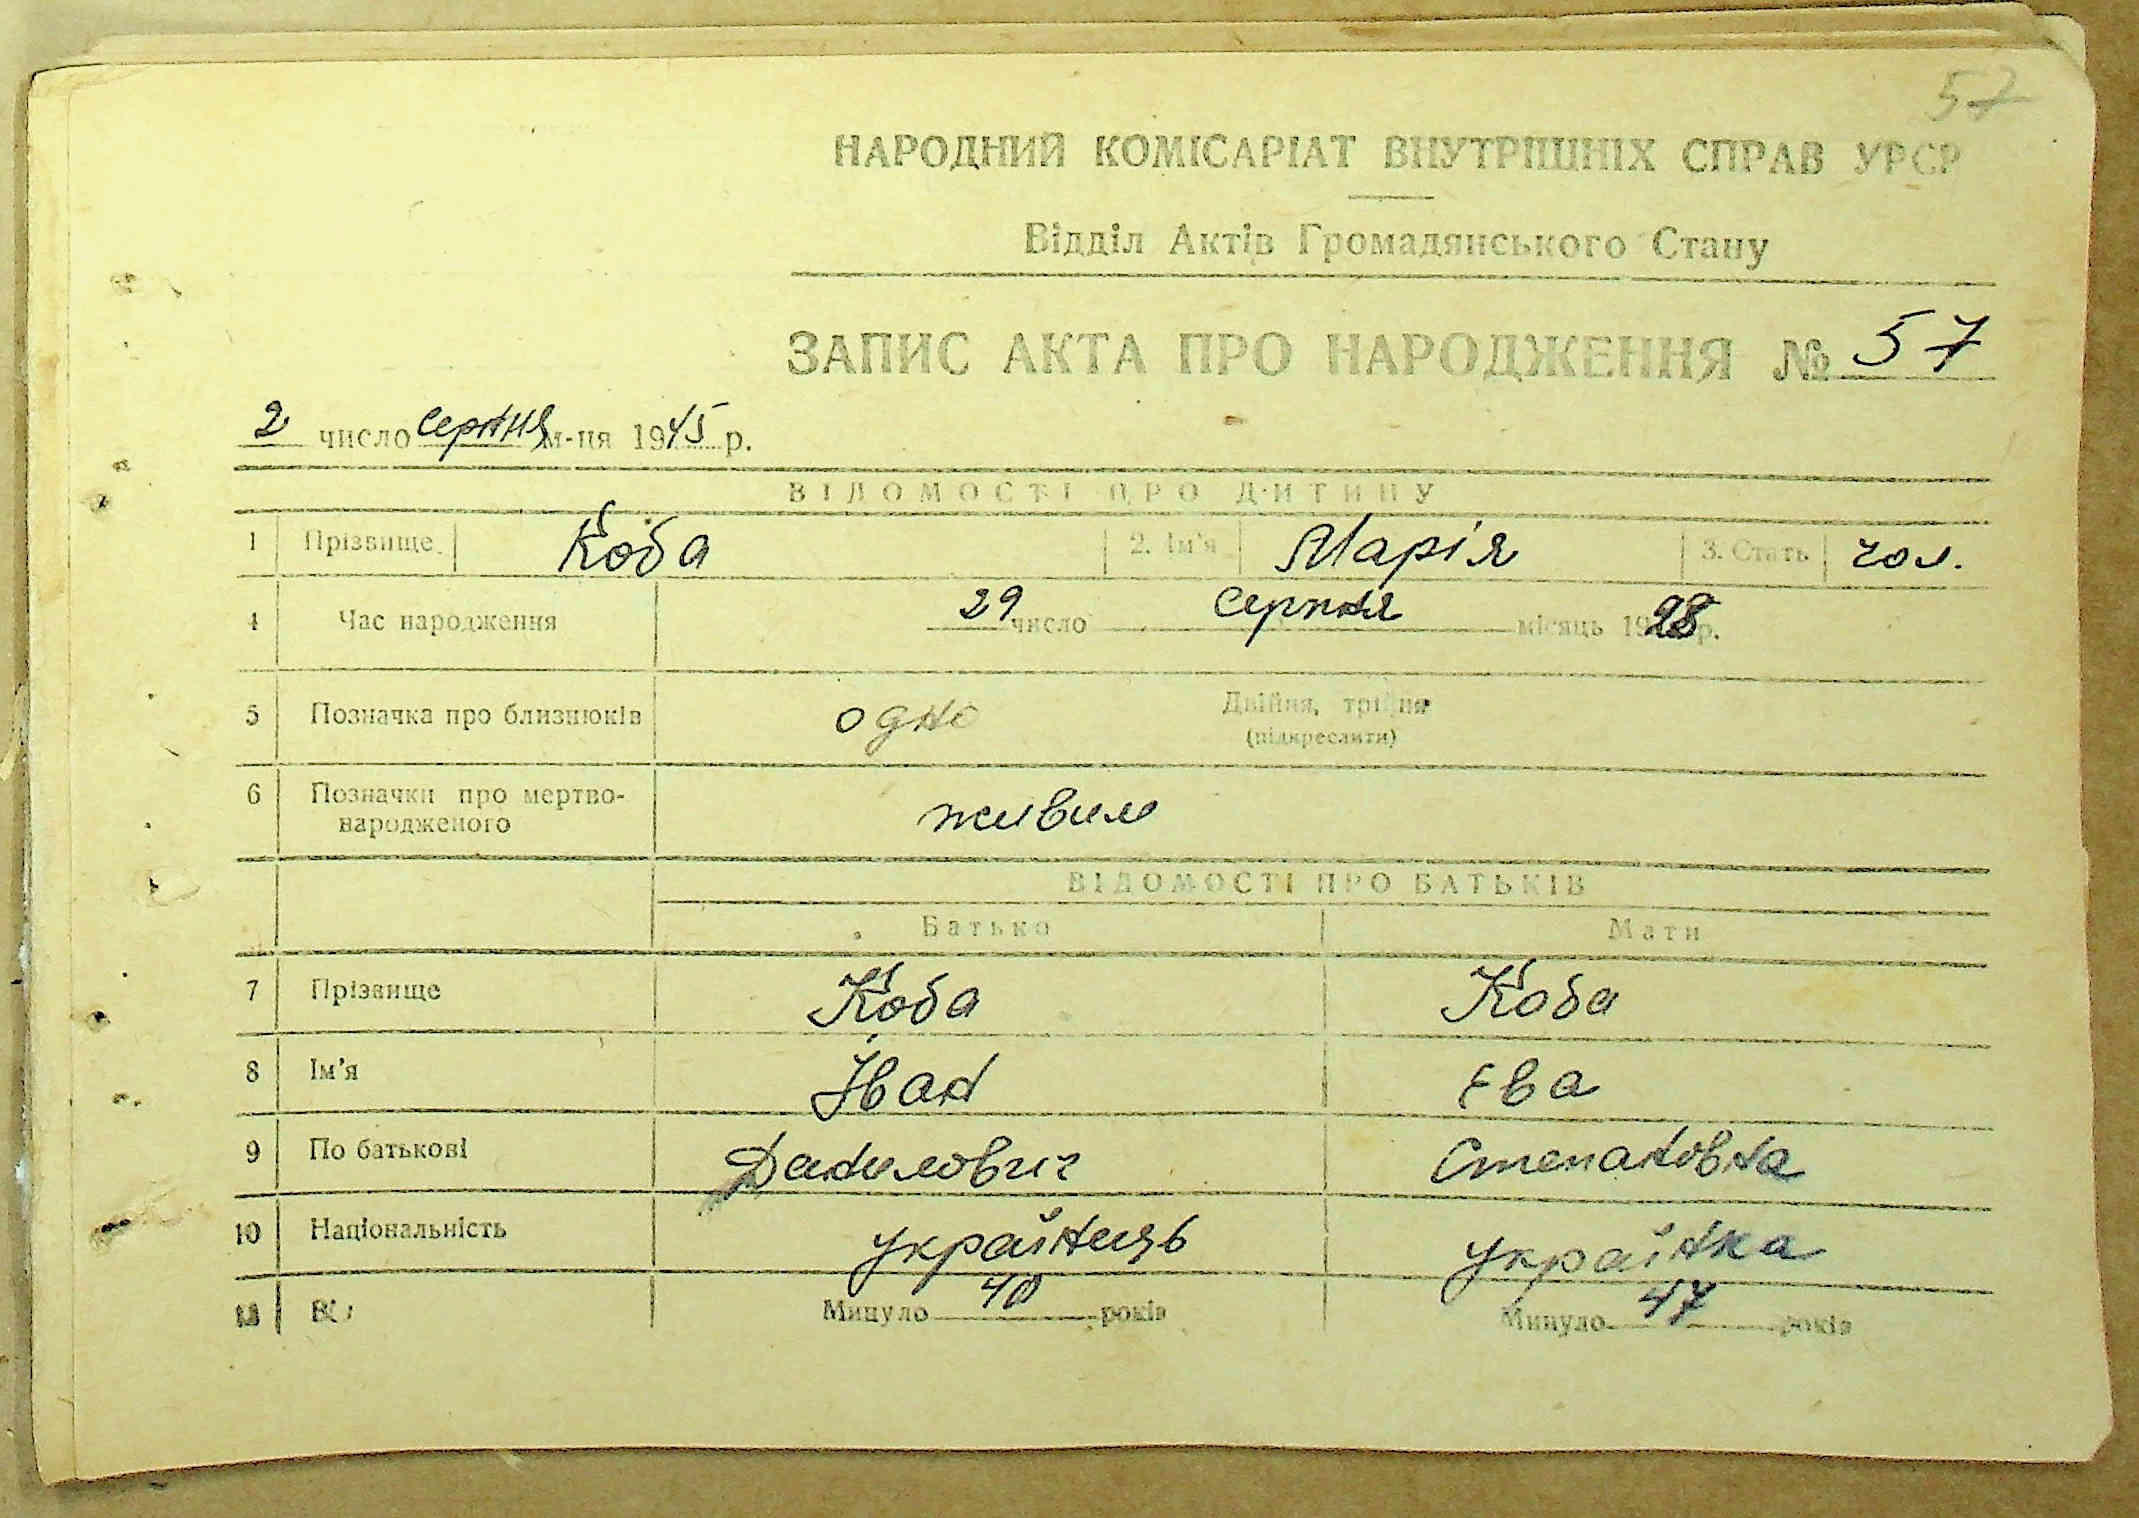 57
НАРОДНИЙ КОМІСАРІАТ ВНУТРІШНІХ СПРАВ УРСР
Відділ Актів Громадянського Стану
ЗАПИС АКТА ПРО НАРОДЖЕННЯ № 57
2 число серпня м-ця 1945 р.
ВІДОМОСТІ ПРО ДИТИНУ
1 Прізвище Коба 2. Ім'я Марія 3. Стать чол.
4 Час народження 29 число серпня місяць 1928 р.
5 Позначка про близнюків одно Двійня, трійня
(підкреслити)
6 Позначки про мертво-
народженого живим
ВІДОМОСТІ ПРО БАТЬКІВ
Батько Мати
7 Прізвище Коба Коба
8 Ім'я Іван Єва
9 По батькові Данилович Степановна
10 Національність українець українка
11 Вік Минуло 40 років Минуло 47 років